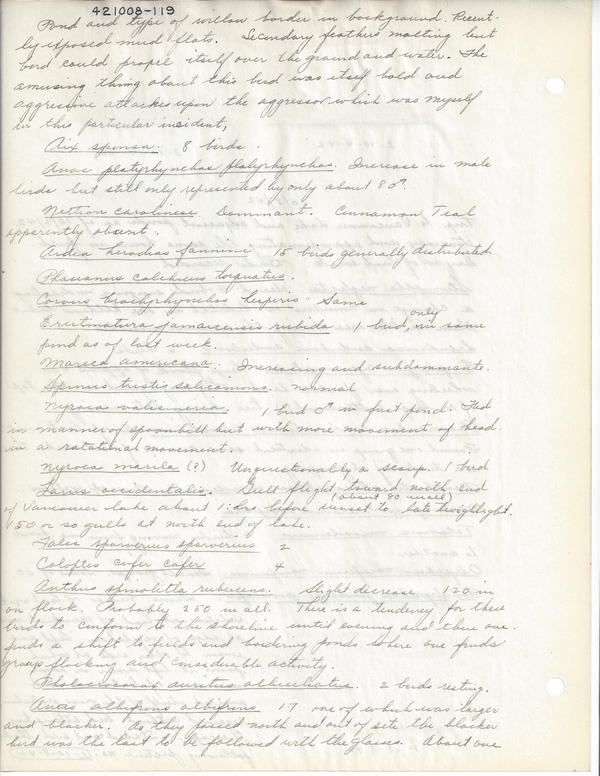 421008-119
Pond and type of willow border in background. Recent-
ly exposed mud flats. Secondary feathers molting but
bird could propel itself over the ground and water. The
amusing thing about this bird was itself bold and
aggressive attackes upon the aggressor which was myself
in this particular insident,
Aix sponsa. 8 birds.
Anas platyrhynchos platyrhynchos. Increase in male
birds but still only represented by only about 8♂.
Nettion carolinese Dominant. Cinnamon Teal
apparently absent.
Ardea herodias fannini 15 birds generally distributed.
Phasianus colchicus torquatus.
Corvus brachyrhynchos hesperis - Same
Erismatura jamaicensis rubida 1 bird, only in same
pond as of last week.
Mareca americana. Increasing and subdominants.
Spinus tristis salicamans. normal
Nyroca valisineria. 1 bird ♂ in first pond. Fed
in manner of spoonbill but with more movement of head
in a rotational movement.
Nyroca marila (?) Unquestionably a scaup. 1 bird
Larus occidentalis. Gull flight toward north end
of Vancouver Lake about 1:hrs before sunset to late twighlight. (about 80 in all)
150 or so gulls at north end of lake.
Falco sparverius sparverius 2
Colaptes cafer cafer 4
Anthus spinoletta rubescens. Slight decrease 120 in
on flock. Probably 250 in all. There is a tendency for these
birds to conform to the shoreline until evening and then one
finds a shift to fields and bordering ponds where one finds
groups flocking and considerable activity.
Phalacrocorax auritus albociliatus. 2 birds resting.
Anas albifrons albifrons 17 one of which was larger
and blacker. As they passed north and out of site the blacker
bird was the last to be followed with the glasses. About one